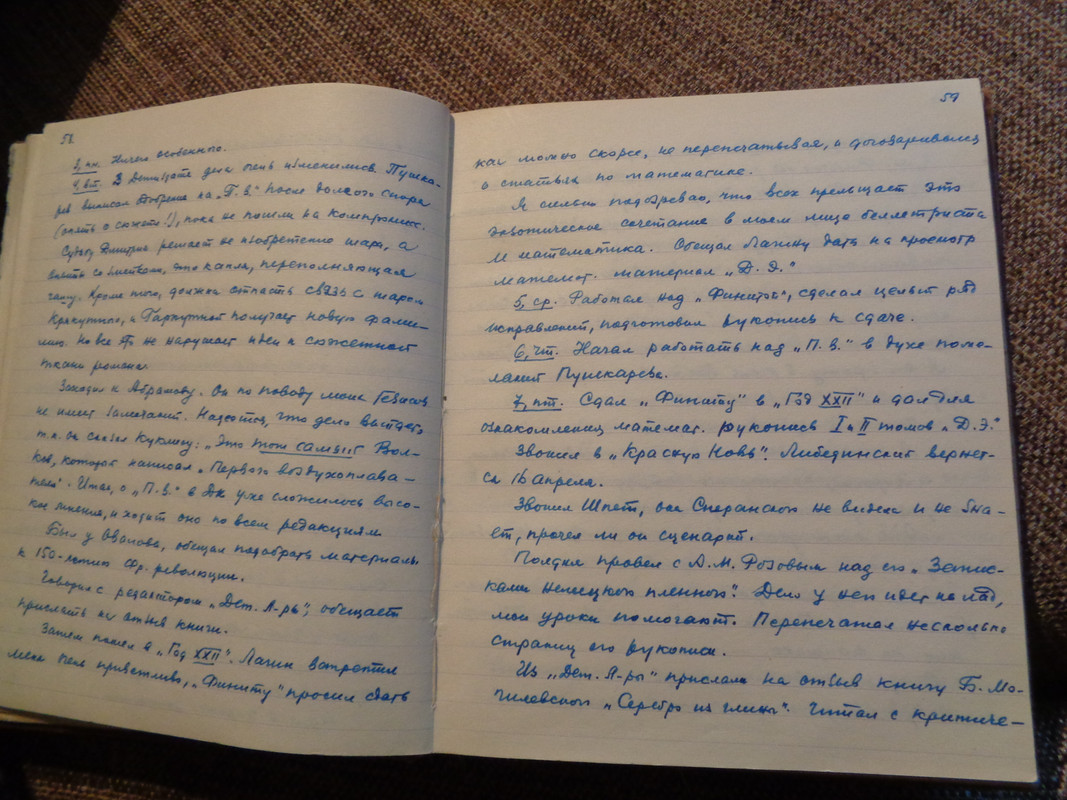 58.
3, пн. Ничего особенного.
4, вт. В Детиздате дела очень изменились. Пушка-
рев выписал одобрение на „П. В.“ после долгого спора
(опять о сюжете!), пока не пошли на компромисс.
Судьбу Дмитрия решает не изобретение шара, а
со это капля, переполняющая
чашу. Кроме того, должна отпасть связь с шаром
Крякутного, и Гаркутной получает новую фами-
лию. Но все это не нарушает идеи и сюжетной
ткани романа.
Заходил к Абрамову. Он по поводу моих тезисов
не имеет замечаний. Надеется, что дело выйдет,
т.к. он сказал Куклису: „Это тот самый Вол-
ков, который написал „Первого воздухоплава-
теля“. Итак, о „П. В.“ в Дии уже сложилось высо-
кое мнение, и ходит оно по всем редакциям.
Был у Ованова, обещал подобрать материалы
к 150-летию Фр. революции.
Говорил с редактором „Дет. Л-ры“, обещает
прислать на отзыв книги.
Затем пошел в „Год XXII“. Лапин встретил
меня очень приветливо, „Финиту“ просил сдать
59
как можно скорее, не перепечатывая, и договаривались
о статьях по математике.
Я сильно подозреваю, что всех прельщает это
экзотическое сочетание в моем лице беллетриста
и математика. Обещал Лапину дать на просмотр
математ. материал „Д. Э.“
5, ср. Работал над „Финитой“, сделал целый ряд
исправлений, подготовил рукопись к сдаче.
6, чт. Начал работать над „П. В.“ в духе поже-
ланий Пушкарева.
7, пт. Сдал „Финиту“ в „Год XXII“ и дал для
ознакомления математ. рукопись I и II томов „Д. Э.“
Звонил в „Красную Новь“. Либединский вернет-
ся 16 апреля.
Звонил Шпет, она Сперанского не видела и не зна-
ет, прочел ли он сценарий.
Полдня провел с А. М. Розовым над его „Запис-
ками немецкого пленного“. Дело у него идет на лад,
мои уроки помогают. Перепечатал несколько
страниц его рукописи.
Из „Дет. Л-ры“ прислали на отзыв книгу Б. Мо-
гилевского „Серебро из глины“. Читал с критиче-